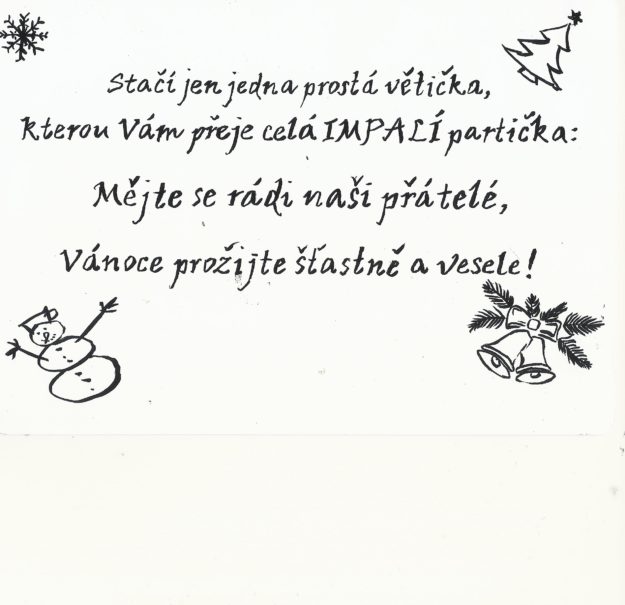 Stačí jen jedna prostá větička,
kterou Vám přeje celá IMPALÍ partička:
Mějte se rádi naši přátelé,
Vánoce prožijte šťastně a vesele!